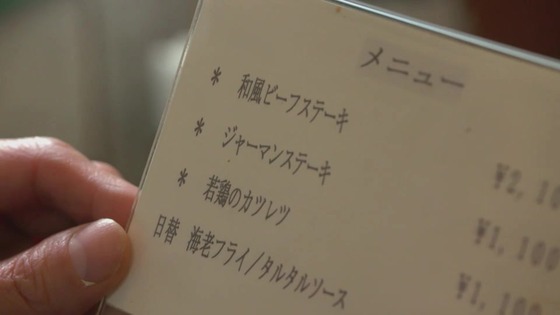 メニュー
* 和風ビーフステーキ ¥2,10
* ジャーマンステーキ ¥1,100
* 若鶏のカツレツ ¥1,10
日替 海老フライ/タルタルソース